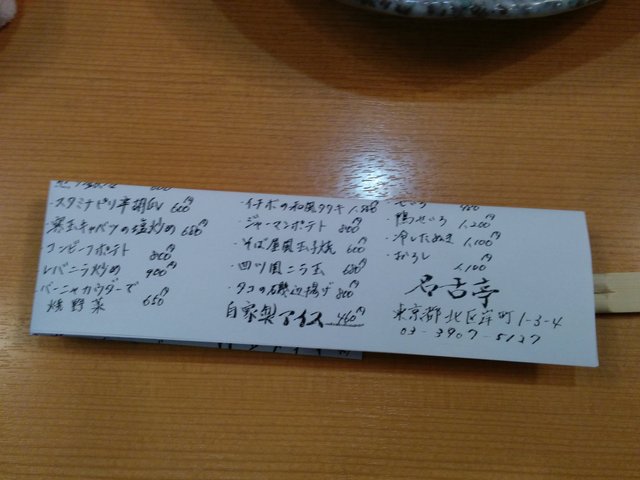 ・スタミナピリ辛胡瓜 600円
・寒玉キャベツの塩炒め 650円
コンビーフポテト 800円
レバニラ炒め 900円
・バーニャカウダーで
焼野菜 650円
・イチボの和風タタキ
・ジャーマンポテト 800円
・そば屋風玉子焼 600円
・四川風ニラ玉 680円
・タコの磯辺揚げ 800円
自家製アイス 460円
・せいろ
・鴨せいろ 1,200円
・冷したぬき 1,100円
・おろし 1,100円
名古亭
東京都北区岸町1-3-4
03-3907-5127